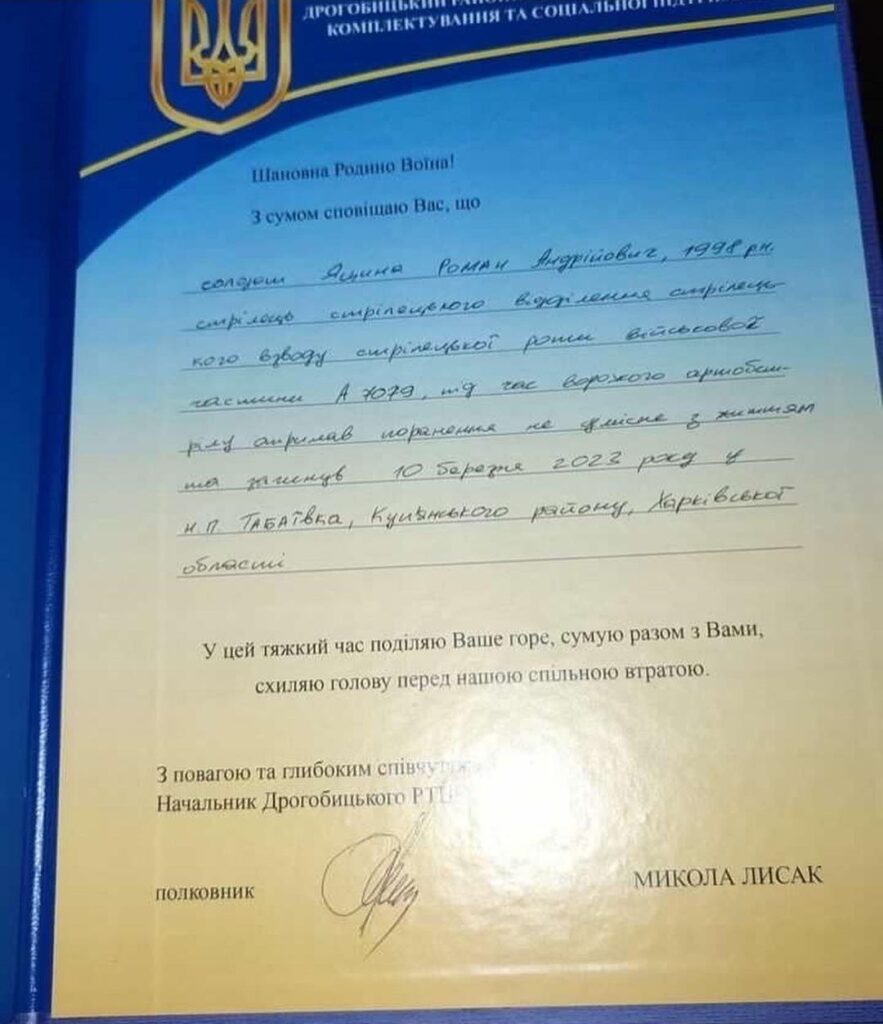 ДРОГОБИЦЬКИЙ
КОМПЛЕКТУВАННЯ ТА СОЦІАЛЬНОЇ
Шановна Родино Воїна!
З сумом сповіщаю Вас, що
солдат Яцина Роман Андрійович, 1998 р.н.
стрілець стрілецького відділення стрілець-
кого взводу стрілецької роти військової
частини А 7079, під час ворожого артобст-
рілу отримав поранення не сумісне з життям
та загинув 10 березня 2023 року у
н.п. ТАБАЇВКА, Куп'янського району, Харківської
області
У цей тяжкий час поділяю Ваше горе, сумую разом з Вами,
схиляю голову перед нашою спільною втратою.
З повагою та глибоким
Начальник Дрогобицького
полковник
МИКОЛА ЛИСАК